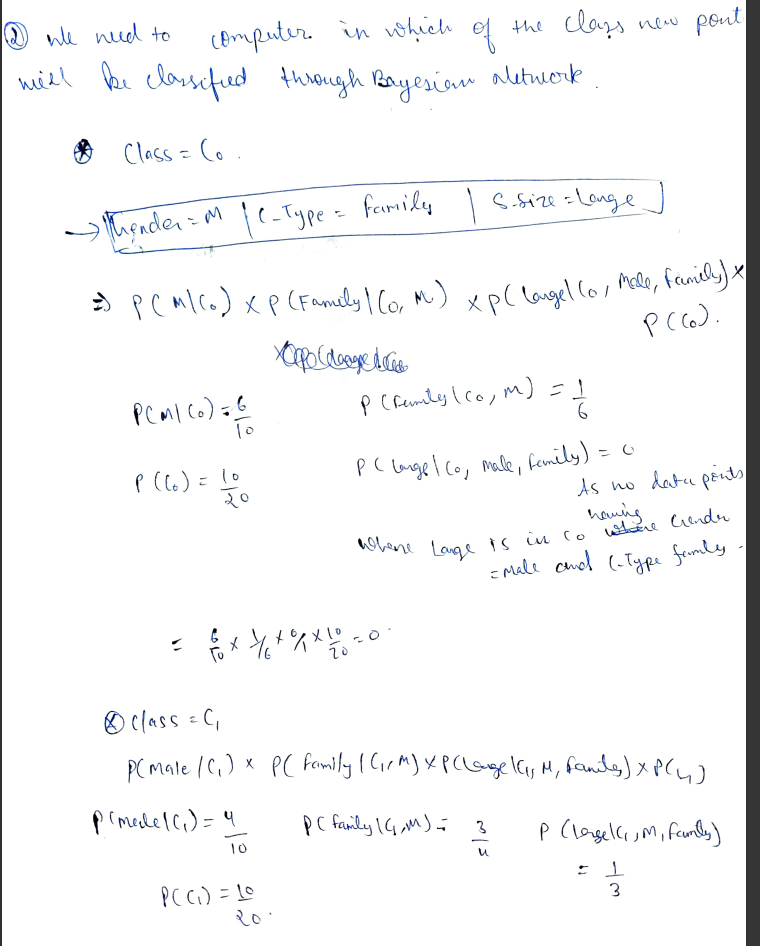 ② We need to computer in which of the class new point
will be classified through Bayesian Network.
Class = C₀.
→ Gender = M | C-Type = Family | S-Size = Large
⇒ P(M|C₀) × P(Family|C₀, M) × P(Large|C₀, Male, Family) ×
P(C₀).
P(M|C₀) = 6/10 P(Family|C₀, M) = 1/6
P(C₀) = 10/20 P(Large|C₀, male, family) = 0
As no data points
having
where Large is in C₀ Gender
= Male and C-Type family.
= 6/10 × 1/6 × 0/1 × 10/20 = 0.
⊗ Class = C₁
P(male/C₁) × P(family|C₁, M) × P(Large|C₁, M, family) × P(C₁)
P(male|C₁) = 4/10 P(family|C₁, M) = 3/4 P(Large|C₁, M, Family)
= 1/3
P(C₁) = 10/20.